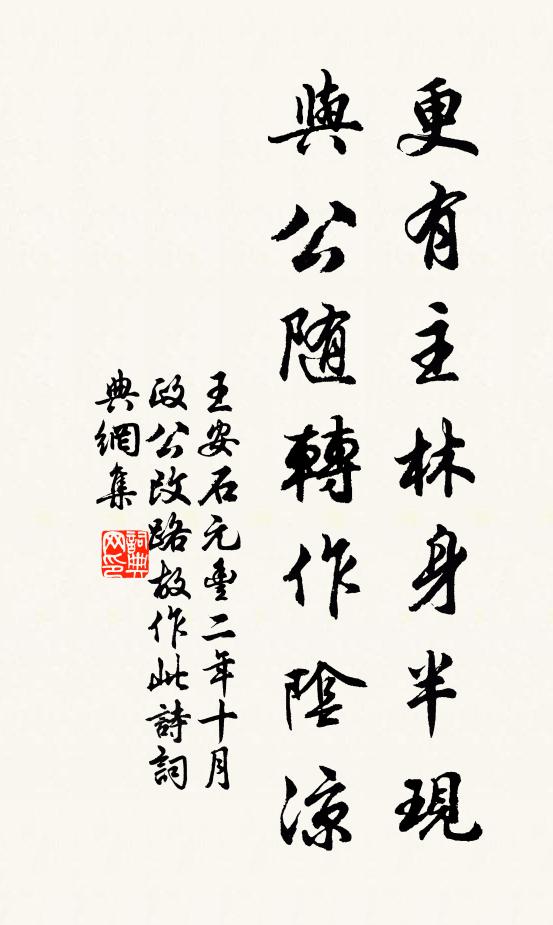 更有主林身半現
與公随轉作陰涼
王安石元豊二年十月
政公改路故作此詩詞
典網集
詞典
网印